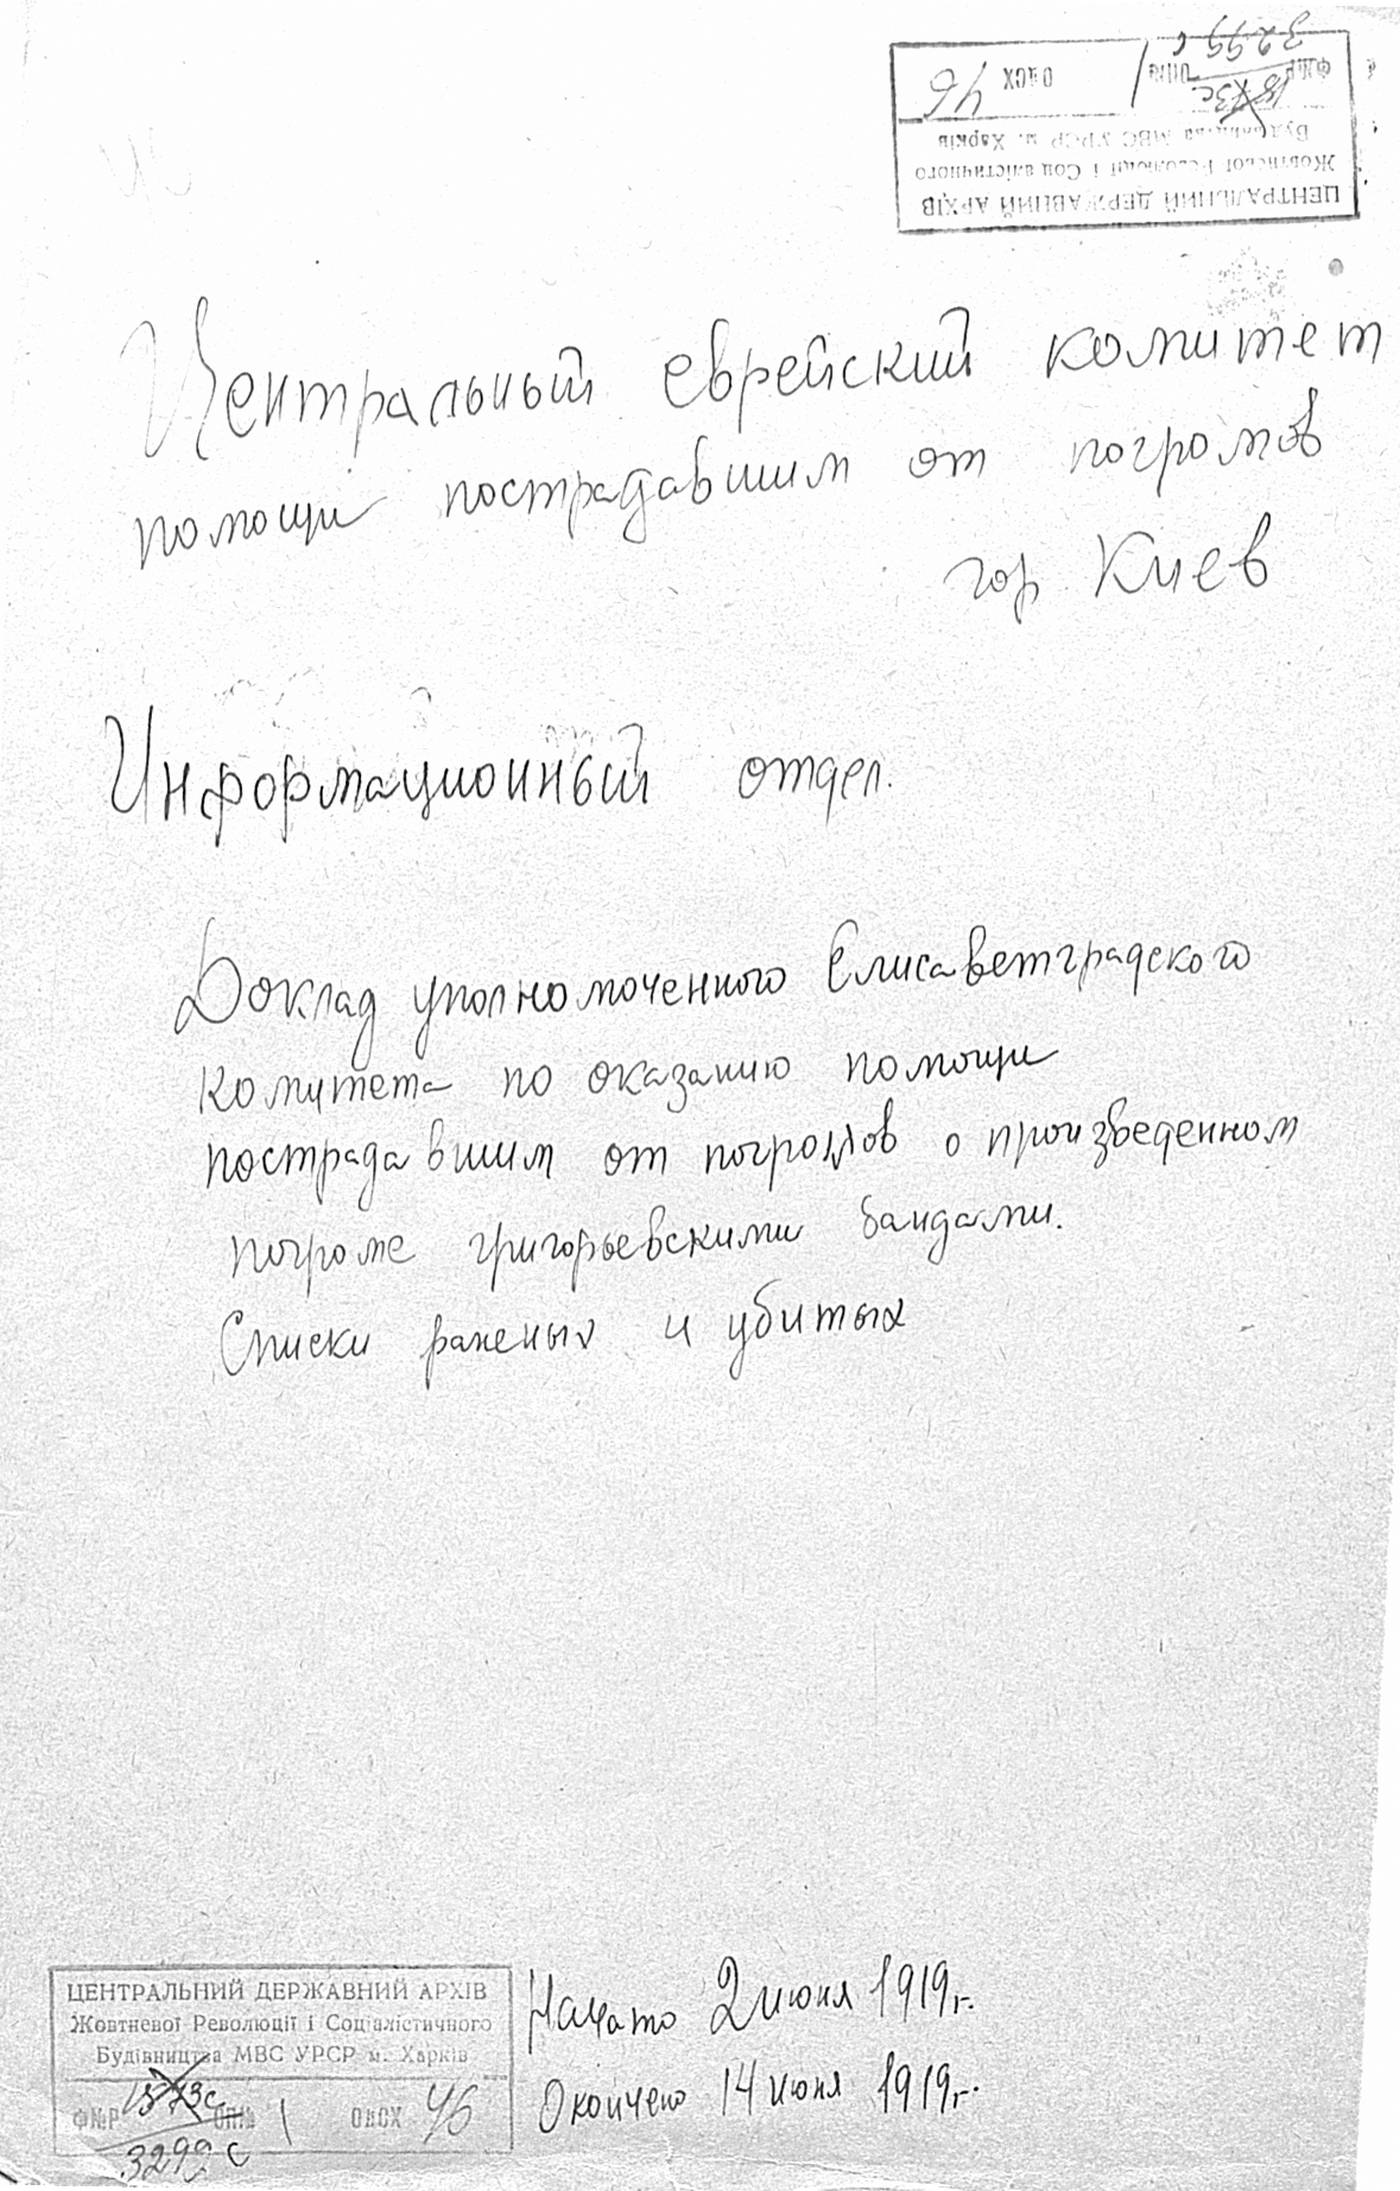 3299 с
Ф№Р 1573с. ОП№ 1 ОдСХ 46
ЦЕНТРАЛЬНИЙ ДЕРЖАВНИЙ АРХІВ
Жовтневої Революції і Соціалістичного
Будівництва МВС УРСР м. Харків
Центральный еврейский комитет
помощи пострадавшим от погромов
гор Киев
Информационный отдел.
Доклад уполномоченного Елисаветградского
комитета по оказанию помощи
пострадавшим от погромов о произведенном
погроме григорьевскими бандами.
Списки раненых и убитых
Начато 2 июня 1919 г.
Окончено 14 июня 1919 г.
ЦЕНТРАЛЬНИЙ ДЕРЖАВНИЙ АРХІВ
Жовтневої Революції і Соціалістичного
Будівництва МВС УРСР м. Харків
Ф№Р 1573с ОП№ 1 ОдСХ 46
3299 с